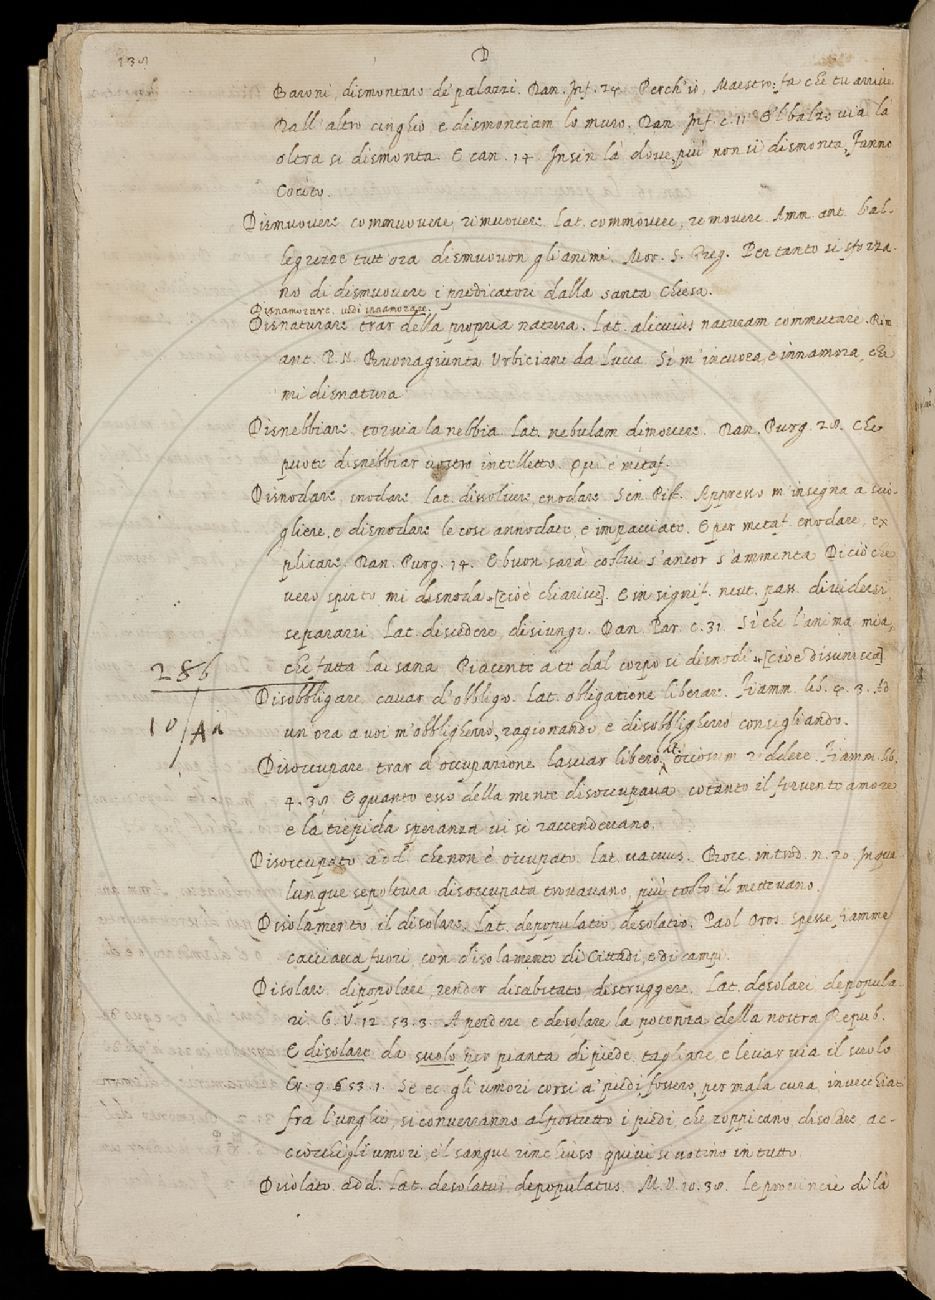 138
D
Baroni dismontaro de' palazzi. Dan. Inf. 24. Perch' io, Maestro, fa che tu arrive
Dall' altro cinghio, e dismontiam lo muro. Dan. Inf. c. 11. E'l balzo via là
oltra si dismonta. E can. 14. Insin là dove più non si dismonta, Fanno
Cocito.
Dismuovere commuovere, rimuovere. Lat. commovere, removere. Amm. ant. L'al-
legrezze tutt' ora dismuovon gli animi. Mor. S. Greg. Pertanto si sforza-
no di dismuovere i predicatori dalla santa Chiesa.
Disnamorare. vedi innamorare.
Disnaturare trar della propria natura. Lat. alicuius naturam commutare. Rim.
ant. P. N. Buonagiunta Urbiciani da Lucca. Sì m' incuora, e innamora, che
mi disnatura
Disnebbiare. tor via la nebbia. Lat. nebulam dimovere. Dan. Purg. 28. Che
puote disnebbiar vostro intelletto. Qui è metaf.
Disnodare, snodare. Lat. dissolvere, enodare. Sen. Pist. Appresso m' insegna a scio-
gliere, e disnodare le cose annodate, e impacciate. E per metaf. enodare, ex
plicare. Dan. Purg. 14. E buon sarà costui s' ancor s' ammenta Di ciò che
vero spirto mi disnoda [cioè chiarisce]. E in signif. neut. pass. dividersi,
separarsi. Lat. discedere, disiungi. Dan Par. c. 31. Sì che l' anima mia,
che fatta hai sana Piacente a te dal corpo si disnodi [cioè disunisca]
286
10 / Aa
Disobbligare, cavar d' obbligo. Lat. obligatione liberare. Fiamm. lib. 4. 3. Ad
un' ora a voi m' obbligherò, ragionando, e disobbligherò consigliando.
Disoccupare trar d' occupazione lasciar libero, Lat. otiosum reddere. Fiamm. lib.
4. 38. E quanto esso della mente disoccupava cotanto il fervento amore
e la trepida speranza vi si raccendevano.
Disoccupato add. che non è occupato. Lat. vacuus. Bocc. introd. n. 20. In qua-
lunque sepoltura disoccupata trovavano, più tosto il mettevano.
Disolamento, il disolare. Lat. depopulatio, desolatio. Paol. Oros. Spesse fiamme
cacciava fuori, con disolamento di Cittadi, e di campi.
Disolare, dipopolare, render disabitato distruggere. Lat. desolari depopula-
ri. G. V. 12. 53. 3. A perdere e desolare la potenza della nostra Repub.
E disolare da suolo per pianta di piede, tagliare, e levar via il suolo
Cr. 9. 53. 1. Se ec. gli umori corsi a' piedi, fossero, per mala cura, invecchia-
fra l' unghie, si converranno al postutto i piedi, che zoppicano, disolare, ac-
ciocchè gli umori, e'l sangue rinchiuso quivi si votino in tutto.
Disolato. add. Lat. desolatus, depopulatus. M. V. 10. 38. Le provincie di là